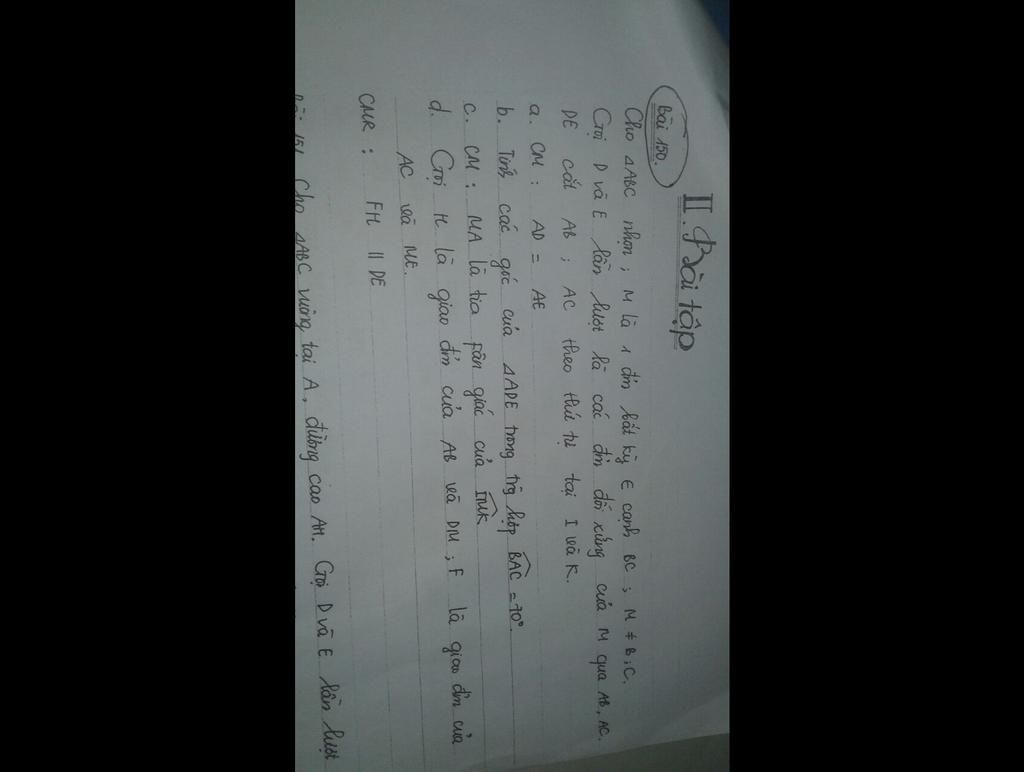 II. Bài tập
Bài 150.
Cho ΔABC nhọn ; M là 1 đ'm bất kỳ ∈ cạnh BC ; M ≠ B ; C.
Gọi D và E lần lượt là các đ'm đối xứng của M qua AB, AC.
DE cắt AB ; AC theo thứ tự tại I và K.
a. CM : AD = AE
b. Tính các góc của ΔADE trong trg hợp BAC = 70°.
c. CM : MA là tia fân giác của IMK
d. Gọi H là giao đ'm của AB và DM ; F là giao đ'm của
AC và ME.
CMR : FH // DE
Bài 151 Cho ΔABC vuông tại A, đường cao AH. Gọi D và E lần lượt